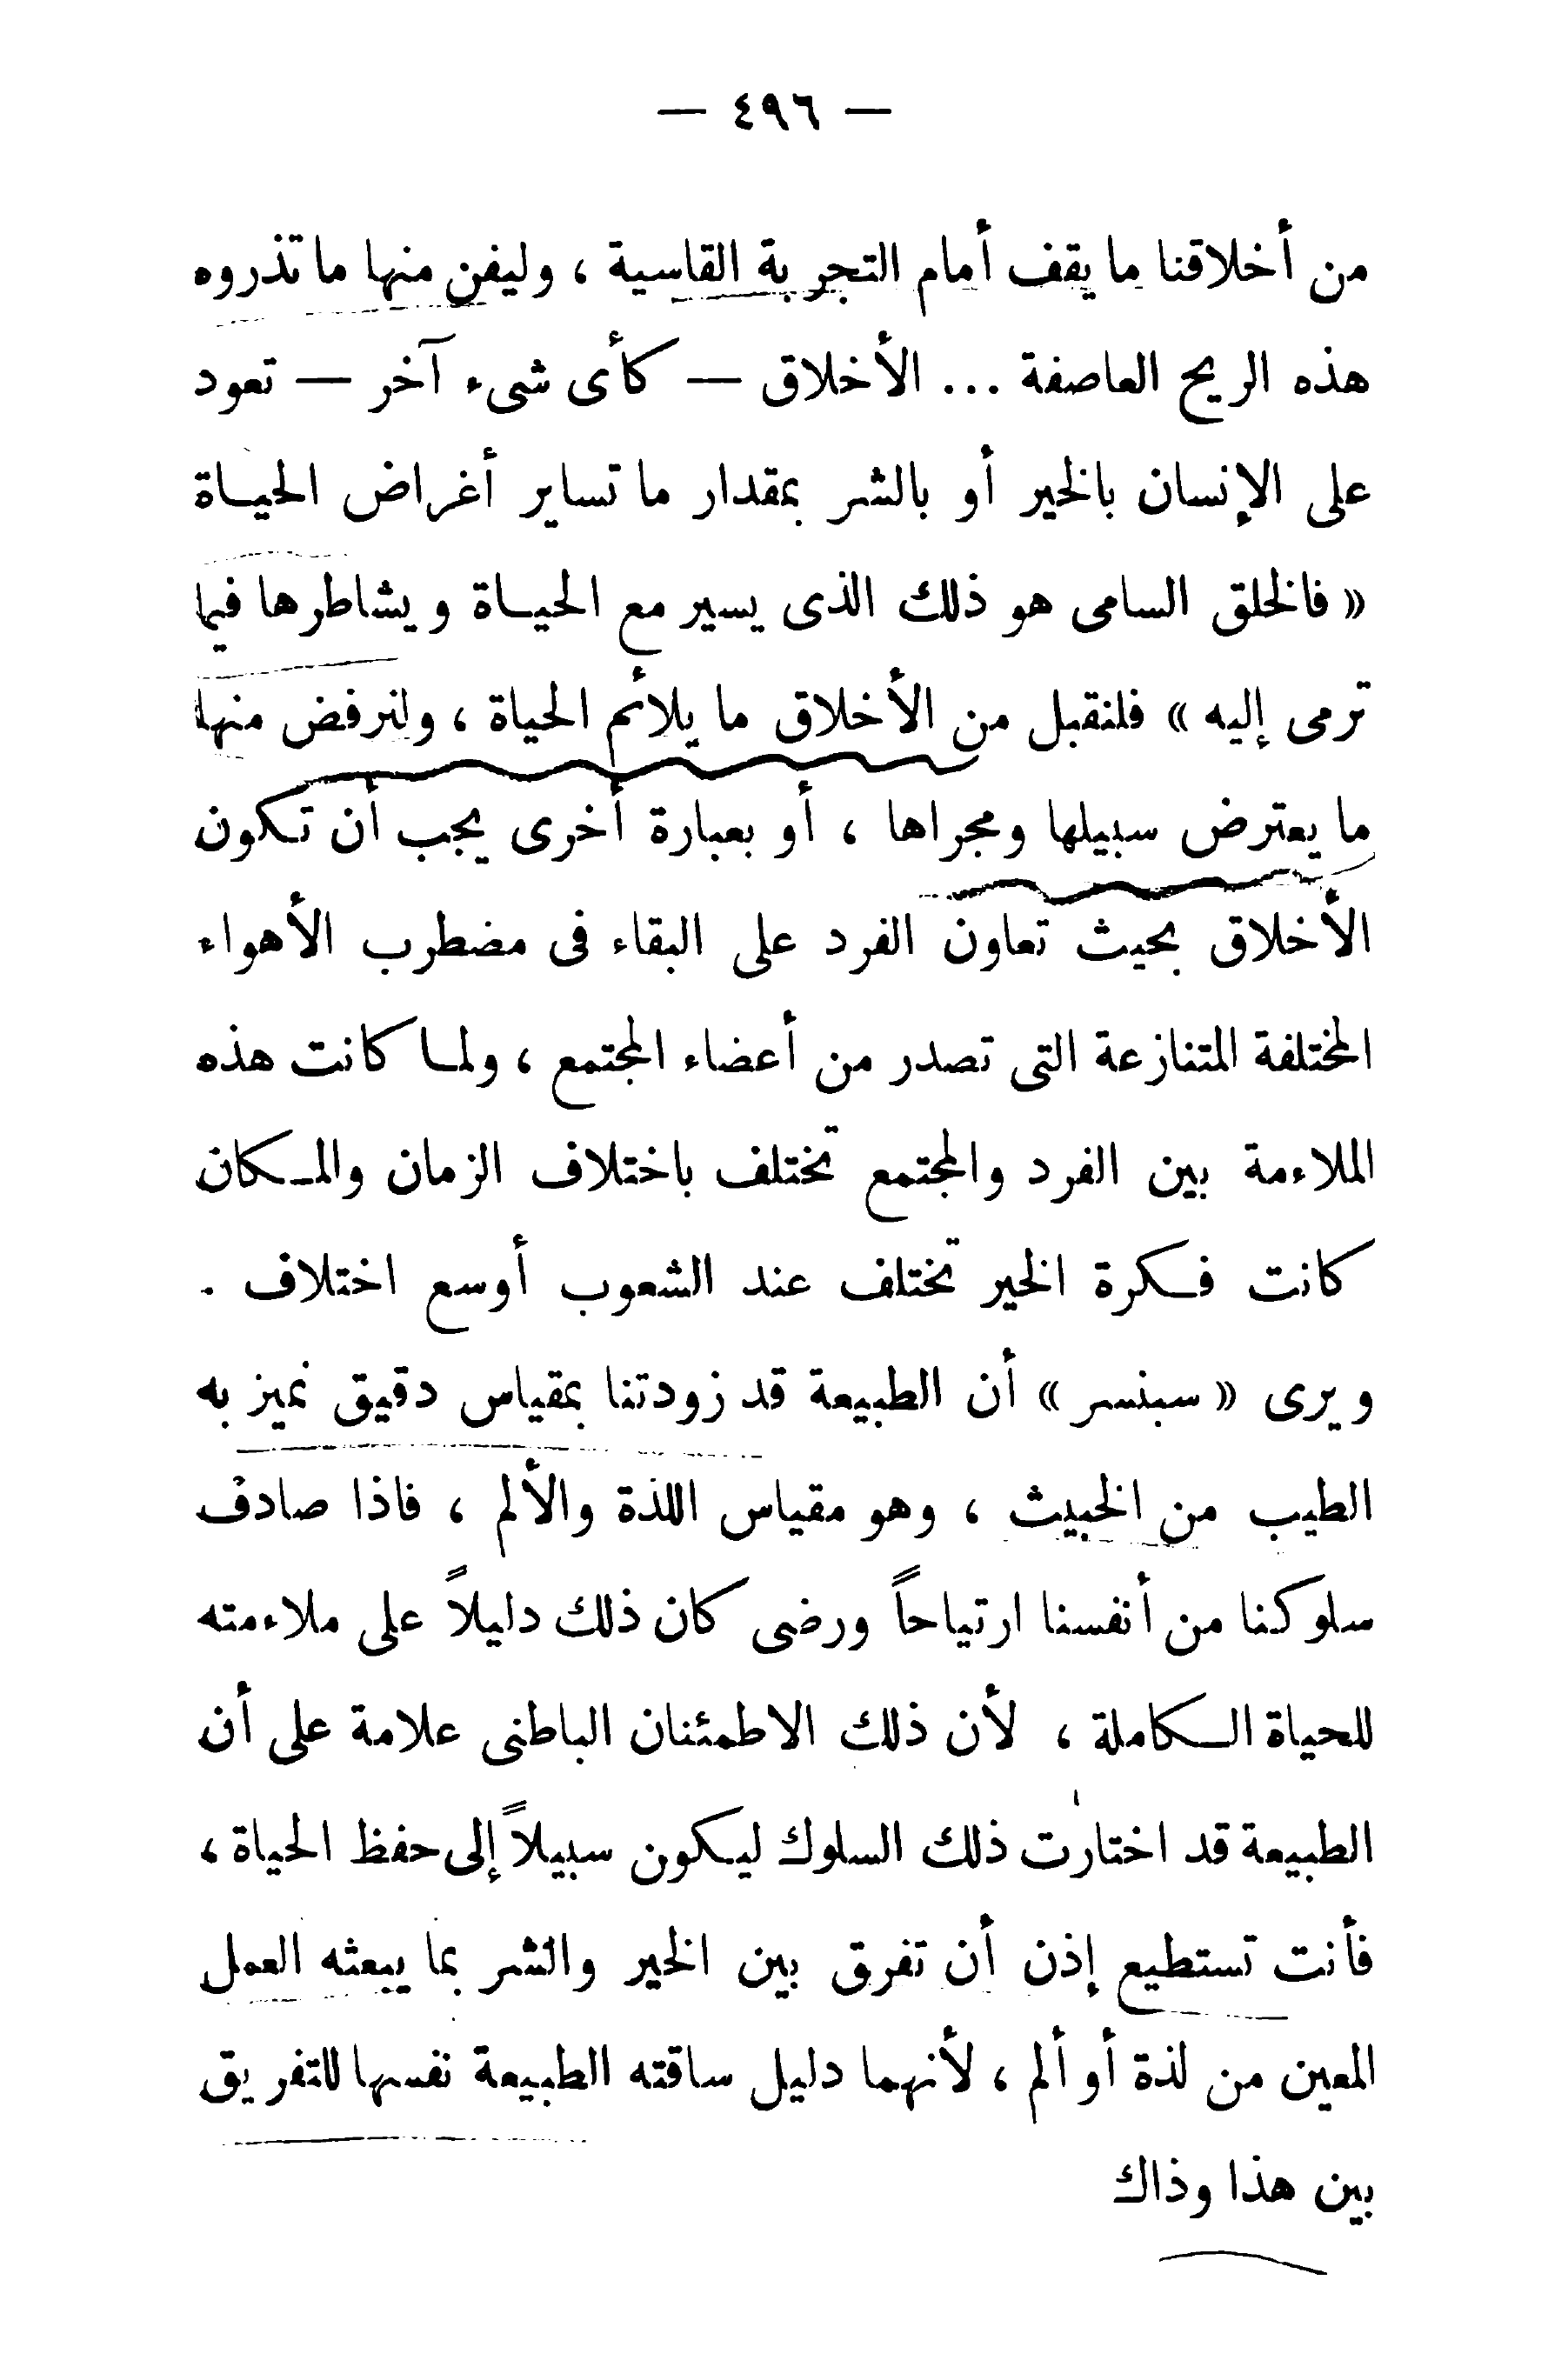 — ٤٩٦ —
من أخلاقنا ما يقف أمام التجربة القاسية ، وليفن منها ما تذروه
هذه الريح العاصفة ... الأخلاق — كأى شىء آخر — تعود
على الإنسان بالخير أو بالشر بمقدار ما تساير أغراض الحياة
« فالخلق السامى هو ذلك الذى يسير مع الحياة ويشاطرها فيما
ترمى إليه » فلنقبل من الأخلاق ما يلائم الحياة ، ولنرفض منها
ما يعترض سبيلها ومجراها ، أو بعبارة أخرى يجب أن تكون
الأخلاق بحيث تعاون الفرد على البقاء فى مضطرب الأهواء
المختلفة المتنازعة التى تصدر من أعضاء المجتمع ، ولما كانت هذه
الملاءمة بين الفرد والمجتمع تختلف باختلاف الزمان والمكان
كانت فكرة الخير تختلف عند الشعوب أوسع اختلاف .
ويرى « سبنسر » أن الطبيعة قد زودتنا بمقياس دقيق نميز به
الطيب من الخبيث ، وهو مقياس اللذة والألم ، فاذا صادف
سلوكنا من أنفسنا ارتياحاً ورضى كان ذلك دليلاً على ملاءمته
للحياة الكاملة ، لأن ذلك الاطمئنان الباطنى علامة على أن
الطبيعة قد اختارت ذلك السلوك ليكون سبيلاً إلى حفظ الحياة ،
فأنت تستطيع إذن أن تفرق بين الخير والشر بما يبعثه العمل
المعين من لذة أو ألم ، لأنهما دليل ساقته الطبيعة نفسها للتفريق
بين هذا وذاك